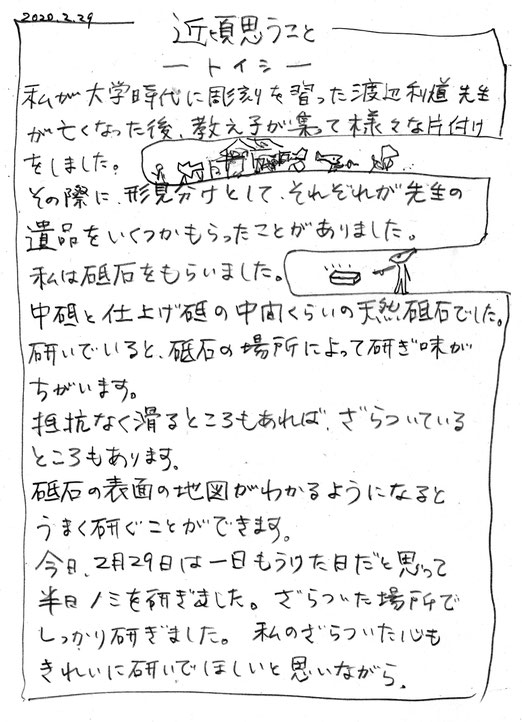 2020.2.29
近頃思うこと
ートイシー
私が大学時代に彫刻を習った渡辺利道先生
が亡くなった後、教え子が集って様々な片付け
をしました。
その際に、形見分けとして、それぞれが先生の
遺品をいくつかもらったことがありました。
私は砥石をもらいました。
中砥と仕上げ砥の中間くらいの天然砥石でした。
研いでいると、砥石の場所によって研ぎ味が
ちがいます。
抵抗なく滑るところもあれば、ざらついている
ところもあります。
砥石の表面の地図がわかるようになると
うまく研ぐことができます。
今日、2月29日は一日もうけた日だと思って
半日ノミを研ぎました。ざらついた場所で
しっかり研ぎました。 私のざらついた心も
きれいに研いでほしいと思いながら.